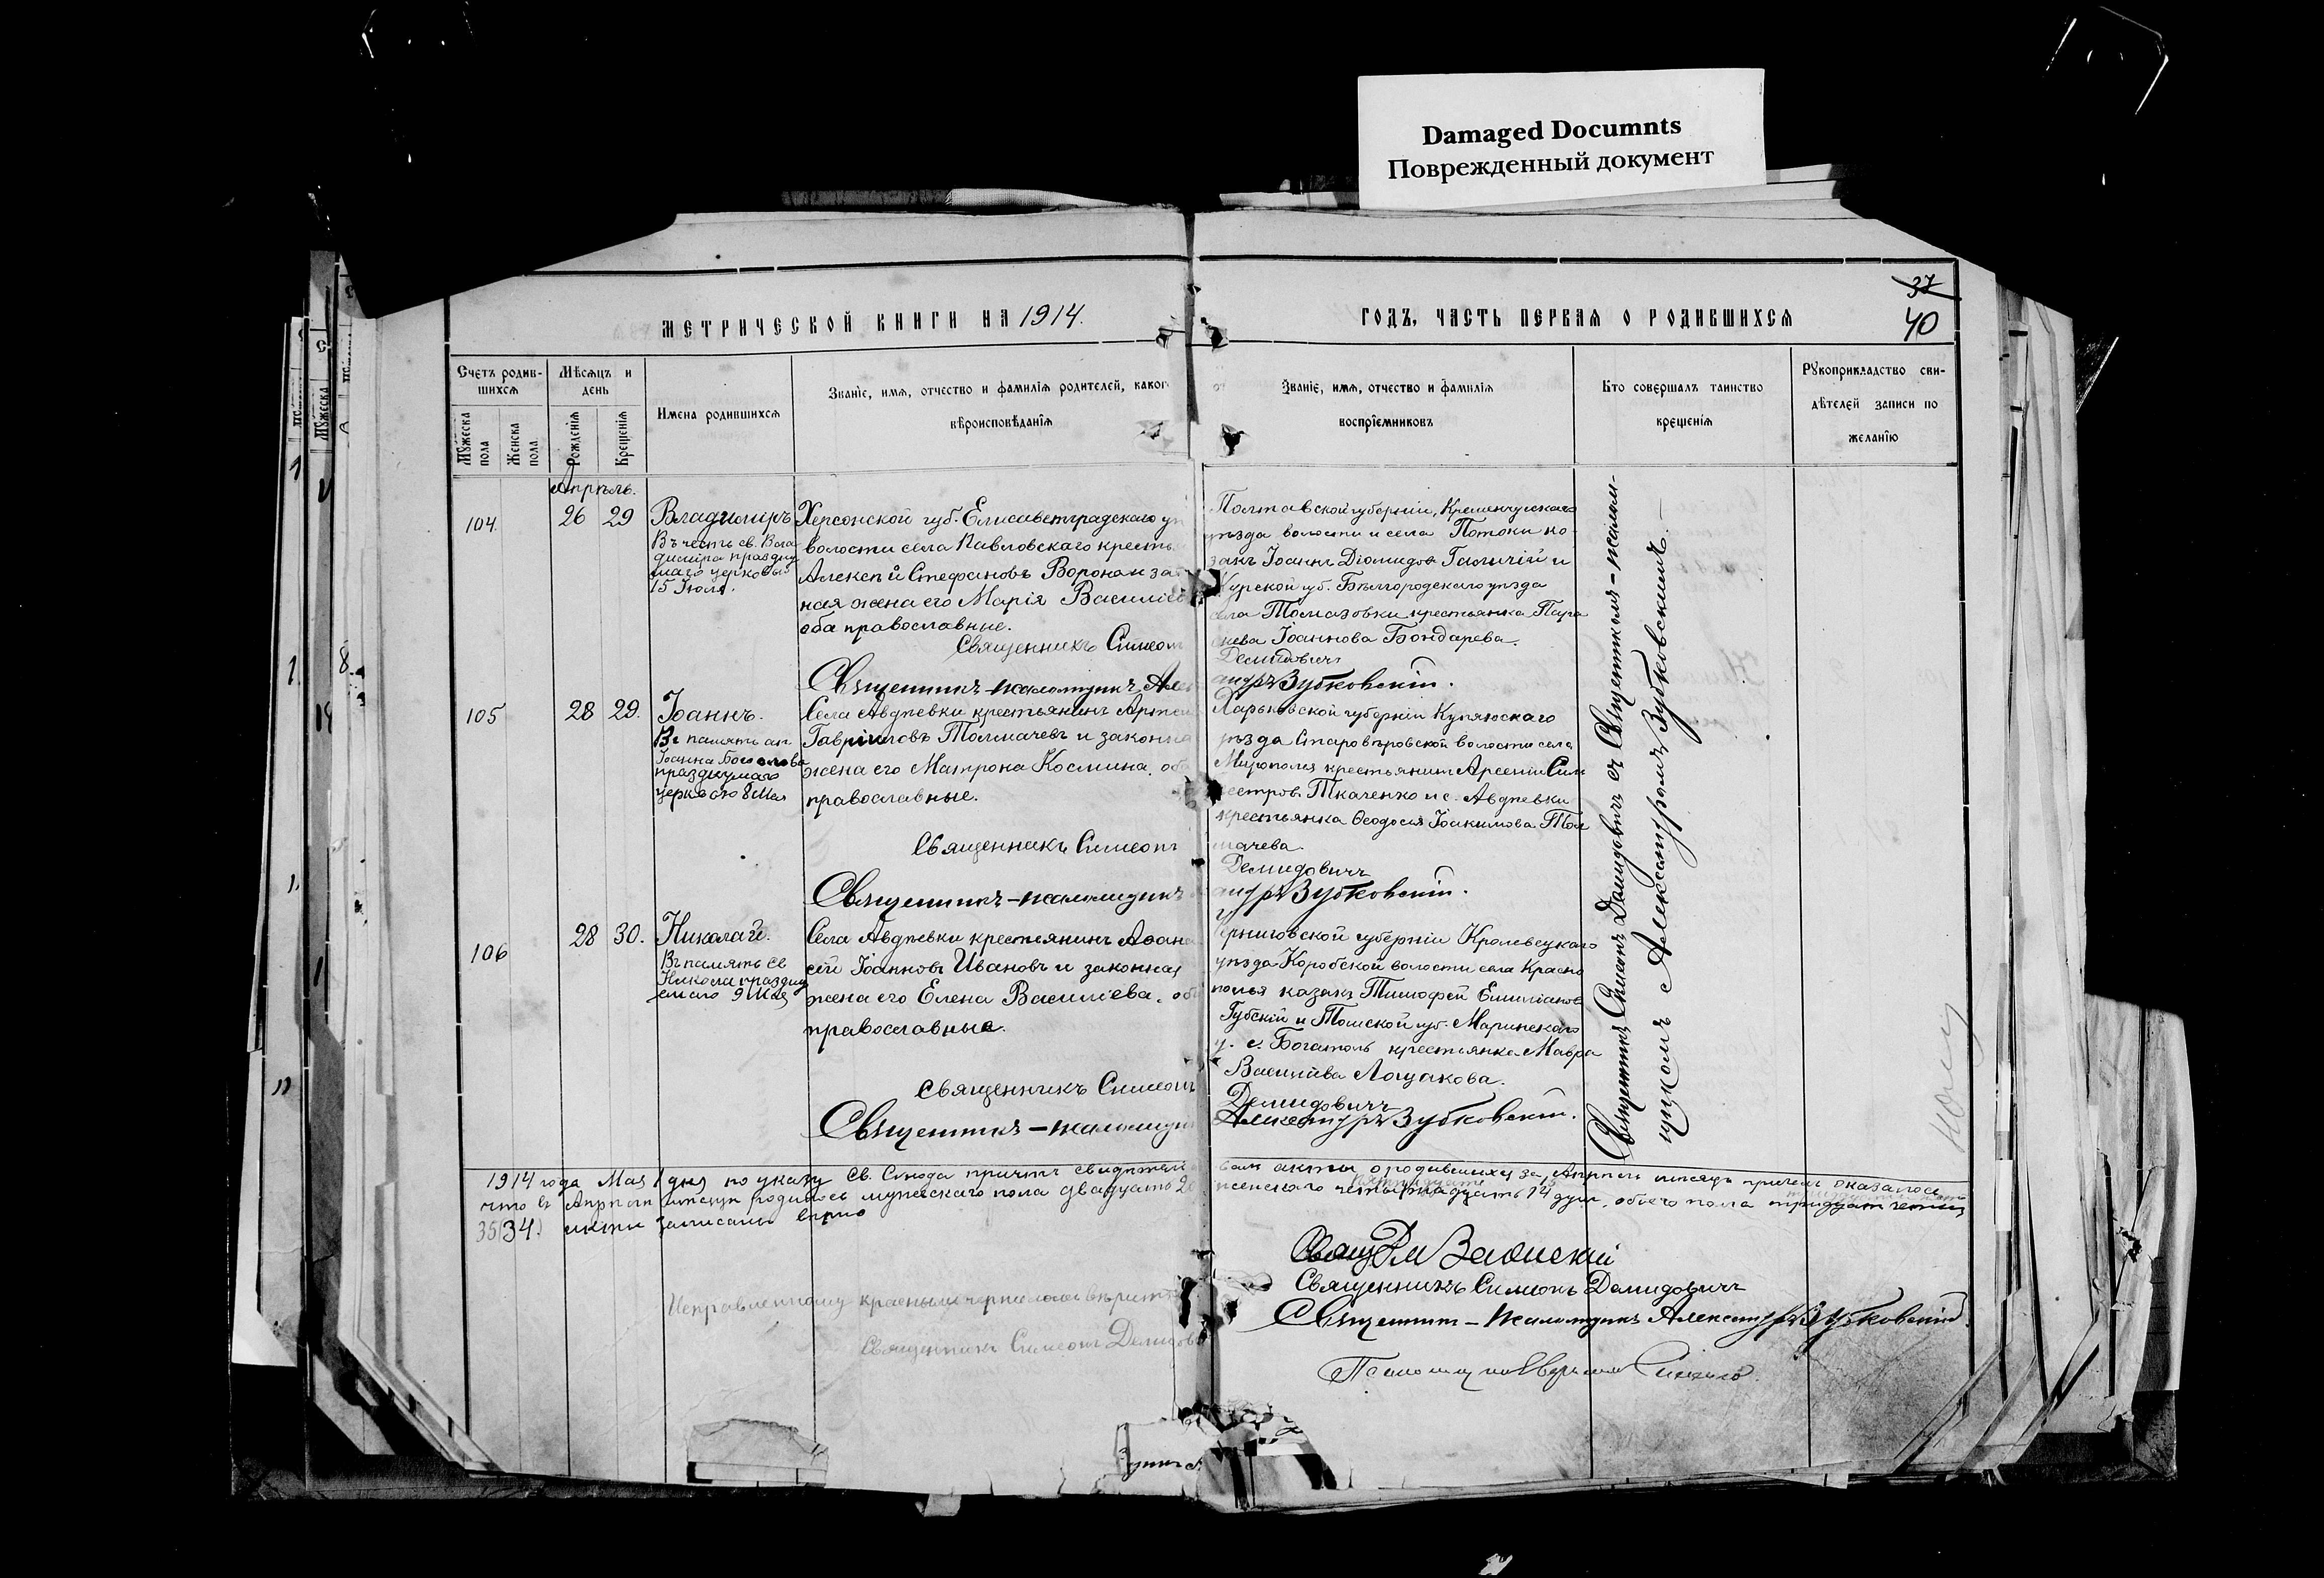 Damaged Documnts
Поврежденный документ
37
40
МЕТРИЧЕСКОЙ КНИГИ НА 1914.
ГОДЪ, ЧАСТЬ ПЕРВАЯ О РОДИВШИХСЯ
Счетъ родив-
шихся
Мужеска пола
Женска пола
Мѣсяцъ и
день
Рожденія
Крещенія
Имена родившихся
Званіе, имя, отчество и фамилія родителей, каког
вѣроисповѣданія
Званіе, имя, отчество и фамилія
воспріемниковъ
Кто совершалъ таинство
крещенія
Рукоприкладство сви-
дѣтелей записи по
желанію
Апрѣль.
104.
26 29
Владиміръ
Въ честь св. Вла
диміра праздну
емаго церковью
15 Іюля.
Херсонской губ. Елисаветградскаго у
волости села Павловскаго кресть
Алексѣй Стефановъ Воронан за
ная жена его Марія Василіе
оба православные.
Священникъ Симеон
Священникъ-псаломщикъ Але
Полтавской губерніи, Кременчугскаго
уѣзда волости и села Потоки ко-
закъ Іоаннъ Діомидов Галичій и
Курской губ. Бѣлгородскаго уѣзда
села Томазовки крестьянка Пара
скева Іоаннова Бондарева.
Демидовичъ
андръ Зубковскій.
105
28 29.
Іоаннъ.
Въ память ап.
Іоанна Богослова
празднуемаго
церковью 8 Мая
Села Авдѣевки крестьянинъ Артем
Гавріиловъ Толмачевъ и законна
жена его Матрона Космина. оба
православные.
Священникъ Симеон
Священникъ-псаломщикъ
Харьковской губерніи Купянскаго
уѣзда Старовѣровской волости села
Мирополья крестьянин Арсеній Сил
вестров. Ткаченко и с. Авдѣевки
крестьянка Ѳеодосія Іоакимова Тол
мачева
Демидовичъ
андръ Зубковскій.
106
28 30.
Николай.
Въ память св
Никола праздну
емаго 9 Мая
Села Авдѣевки крестьянинъ Аѳана
сій Іоанновъ Ивановъ и законная
жена его Елена Василіева. оба
православные.
Священникъ Симеонъ
Священникъ-псаломщи
Черниговской губерніи Кролевецкаго
уѣзда Коробской волости села Красно
полья казакъ Тимофей Емиліанов
Губскій и Томской губ. Маріинскаго
у. с. Боготолъ крестьянка Мавра
Васильева Лощакова.
Демидовичъ
Александръ Зубковскій.
Священникъ Симеонъ Демидовичъ съ Священникомъ-псалом-
щикомъ Александромъ Зубковскимъ.
1914 года Мая 1 дня по указу Св. Синода причтъ свидѣтел
вали акты о родившихся за Апрѣль мѣсяцъ причем оказалось
что въ Апрѣлѣ мѣсяцѣ родилось мужескаго пола двадцать 20
женскаго четырнадцать 14 душ, обоего пола тридцать четыре
35 (34) акты записаны вѣрно
Исправленному красными чернилами вѣрить
Священникъ Симеонъ Демидов
Священникъ Симеонъ Демидовичъ
Священник-псаломщикъ Александръ Зубковскій